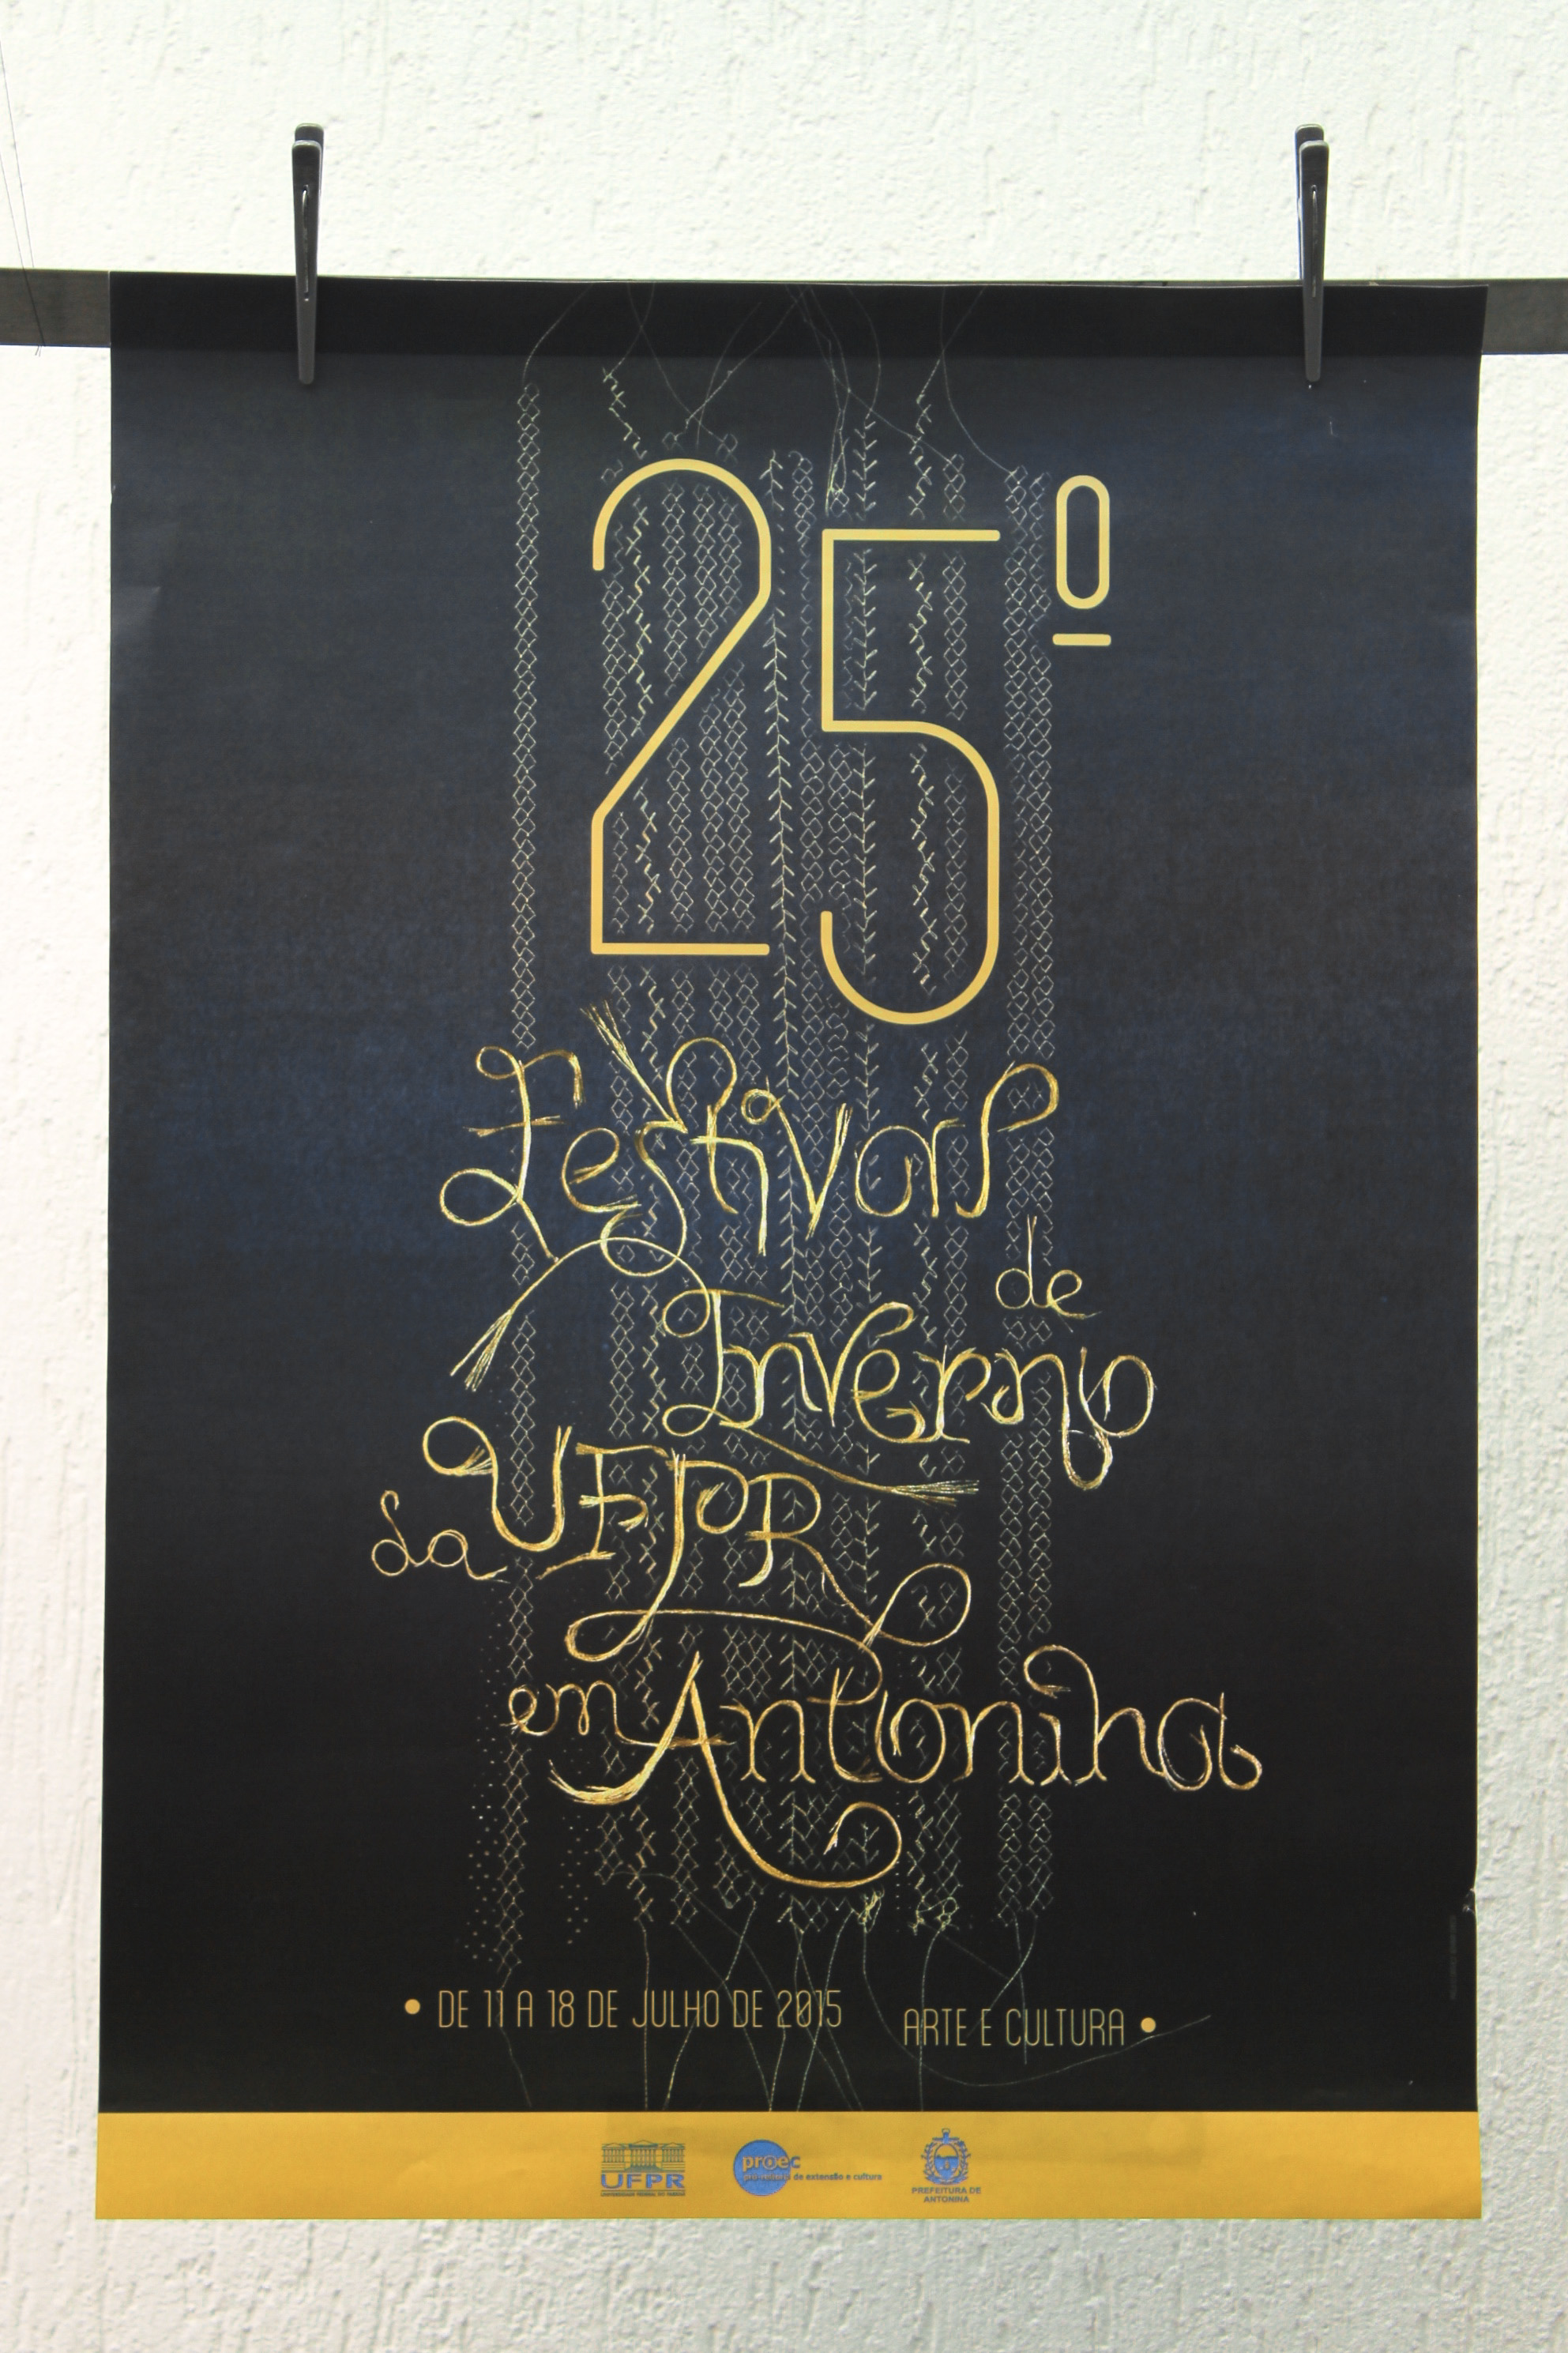 25º
Festival
de
Inverno
da UFPR
em Antonina
DE 11 A 18 DE JULHO DE 2015
ARTE E CULTURA
UFPR
UNIVERSIDADE FEDERAL DO PARANÁ
proec
pró-reitoria de extensão e cultura
PREFEITURA DE
ANTONINA